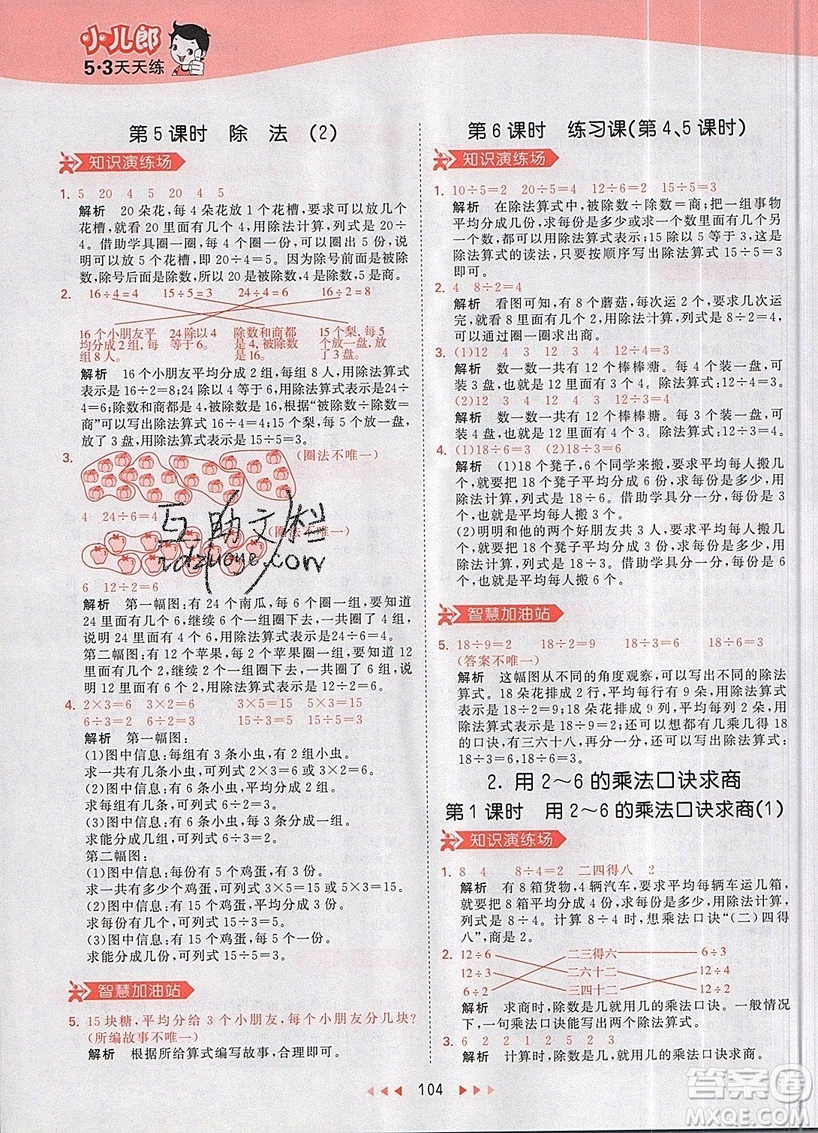 小儿郎
5·3天天练
第5课时 除 法 (2)
知识演练场
1. 5 20 4 5 20 4 5
解析 20朵花,每4朵花放1个花槽,要求可以放几个
花槽,就要求20里面有几个4,用除法计算,列式是20÷
4。借助学具圈一圈,每4个圈一份,可以圈出5份,说
明可以放5个花槽,即20÷4=5。因为除号前面是被除
数,除号后面是除数,所以20是被除数,4是除数,5是商。
2. 16÷4=4 15÷5=3 24÷4=6 16÷2=8
16个小朋友平 24除以4 除数和商都 15个梨,每5
均分成2组,每 等于6。 是4,被除数 个放一盘,放
组8人。 是16。 了3盘。
解析 16个小朋友平均分成2组,每组8人,用除法算式
表示是16÷2=8;24除以4等于6,用除法算式表示是24÷
4=6;除数和商都是4,被除数是16,根据“被除数÷除数=
商”可以写出除法算式16÷4=4;15个梨,每5个放一盘,
放了3盘,用除法算式表示是15÷5=3。
3. (圈法不唯一)
4 24÷6=4
(圈法不唯一)
6 12÷2=6
解析 第一幅图:有24个南瓜,每6个圈一份,要知道24
里面有几个6,继续6个一组圈下去,一共圈了4组,说明
24里面有4个6,用除法算式表示是24÷6=4。
第二幅图:有12个苹果,每2个苹果圈一份,要知道12里
面有几个2,继续2个一组圈下去,一共圈了6组,说明12
里面有6个2,用除法算式表示是12÷2=6。
4. 2×3=6 6÷2=3 3×5=15 15÷3=5
6÷3=2 6÷2=3 15÷5=3 15÷3=5
解析 第一幅图:
(1)图中信息:每组有3条小虫,有2组。
求一共有几条小虫,可列式2×3=6。
(2)图中信息:一共有6条小虫,每组有3条小虫。
求能分成几组,可列式6÷3=2。
(3)图中信息:一共有6条小虫,平均分成2组。
求每组有几条,可列式6÷2=3。
第二幅图:
(1)图中信息:每份有5个鸡蛋,有3份。
求一共有多少个鸡蛋,可列式3×5=15。
(2)图中信息:一共有15个鸡蛋,平均分成3份。
求每份有几个,可列式15÷3=5。
(3)图中信息:一共有15个鸡蛋,平均每份5个。
求能分成几份,可列式15÷5=3。
智慧加油站
5. 15块糖,平均分给3个小朋友,每个小朋友分几块?
(所编故事不唯一)
解析 根据所给算式编写故事,合理即可。
第6课时 练习课(第4、5课时)
知识演练场
1. 10÷5=2 20÷5=4 12÷6=2 15÷5=3
解析 在除法算式中,被除数÷除数=商;把一组事物
平均分成几份,求每份是多少或求一个数里面有几个另
一个数,都可以用除法算式表示;15除以5等于3,这是
除法算式的读法,只要按顺序用除法算式表示15÷5=3
即可。
2. 8 2 4 8÷2=4
解析 看图可知,有8个蘑菇,每次运2个,要求几次运
完,就要求8里面有几个2,用除法计算,列式是8÷2,
可以通过圈一圈求出商。
3. (1)12 4 3 12 4 3 12÷4=3
解析 数一数一共有12个棒棒糖。每4个装一盘,可
装3盘,用除法算式表示是12÷4=3。
(2)12 3 4 12÷3=4
解析 数一数一共有12个棒棒糖。平均装3盘,每盘
装4个,用除法算式表示是12÷3=4。
4.
解析 (1)18个凳子,6个同学来搬,要求平均每人搬几
个,就要把18个凳子平均分成6份,求每份是多少,用除
法计算,列式是18÷6。借助学具分一分,平均每人搬3
个,用除法算式表示是18÷6=3。
(2)明明和他的两个好朋友共3人,要求平均每人搬几
个,就要把18个凳子平均分成3份,求每份是多少,用除
法计算,列式是18÷3。借助学具分一分,平均每人搬6
个,用除法算式表示是18÷3=6。
智慧加油站
5. 18÷9=2 18÷2=9 18÷3=6 18÷6=3
(答案不唯一)
解析 这幅图从不同的角度观察,可以写出不同的除法
算式。18朵花平均分成9份,每份有2朵,用
除法算式表示是18÷9=2;还可以想一想有几乘几得18
的口诀,有三六十八,可以写出除法算式18÷6=3或
18÷3=6。
2. 用2～6的乘法口诀求商
第1课时 用2～6的乘法口诀求商(1)
知识演练场
1. 8 4 8÷4=2 二四得八 2
解析 有8箱货物,4辆汽车,要求平均每辆运几箱,可
列式是8÷4。计算8÷4时,想乘法口诀“(二)四得
八”,商是2。
2. 12÷6 二三得六 6÷3
12÷3 二六十二 6÷2
12÷4 三四十二 12÷2
解析 求商时,除数是几就用几的乘法口诀。一般情况
下,一句乘法口诀可以写出两个除法算式。
3. 6 2 2 1 3 2 5 3
解析 计算时,除数是几,就想几的乘法口诀求商。
104
互助文档
答案圈
MXQE.COM